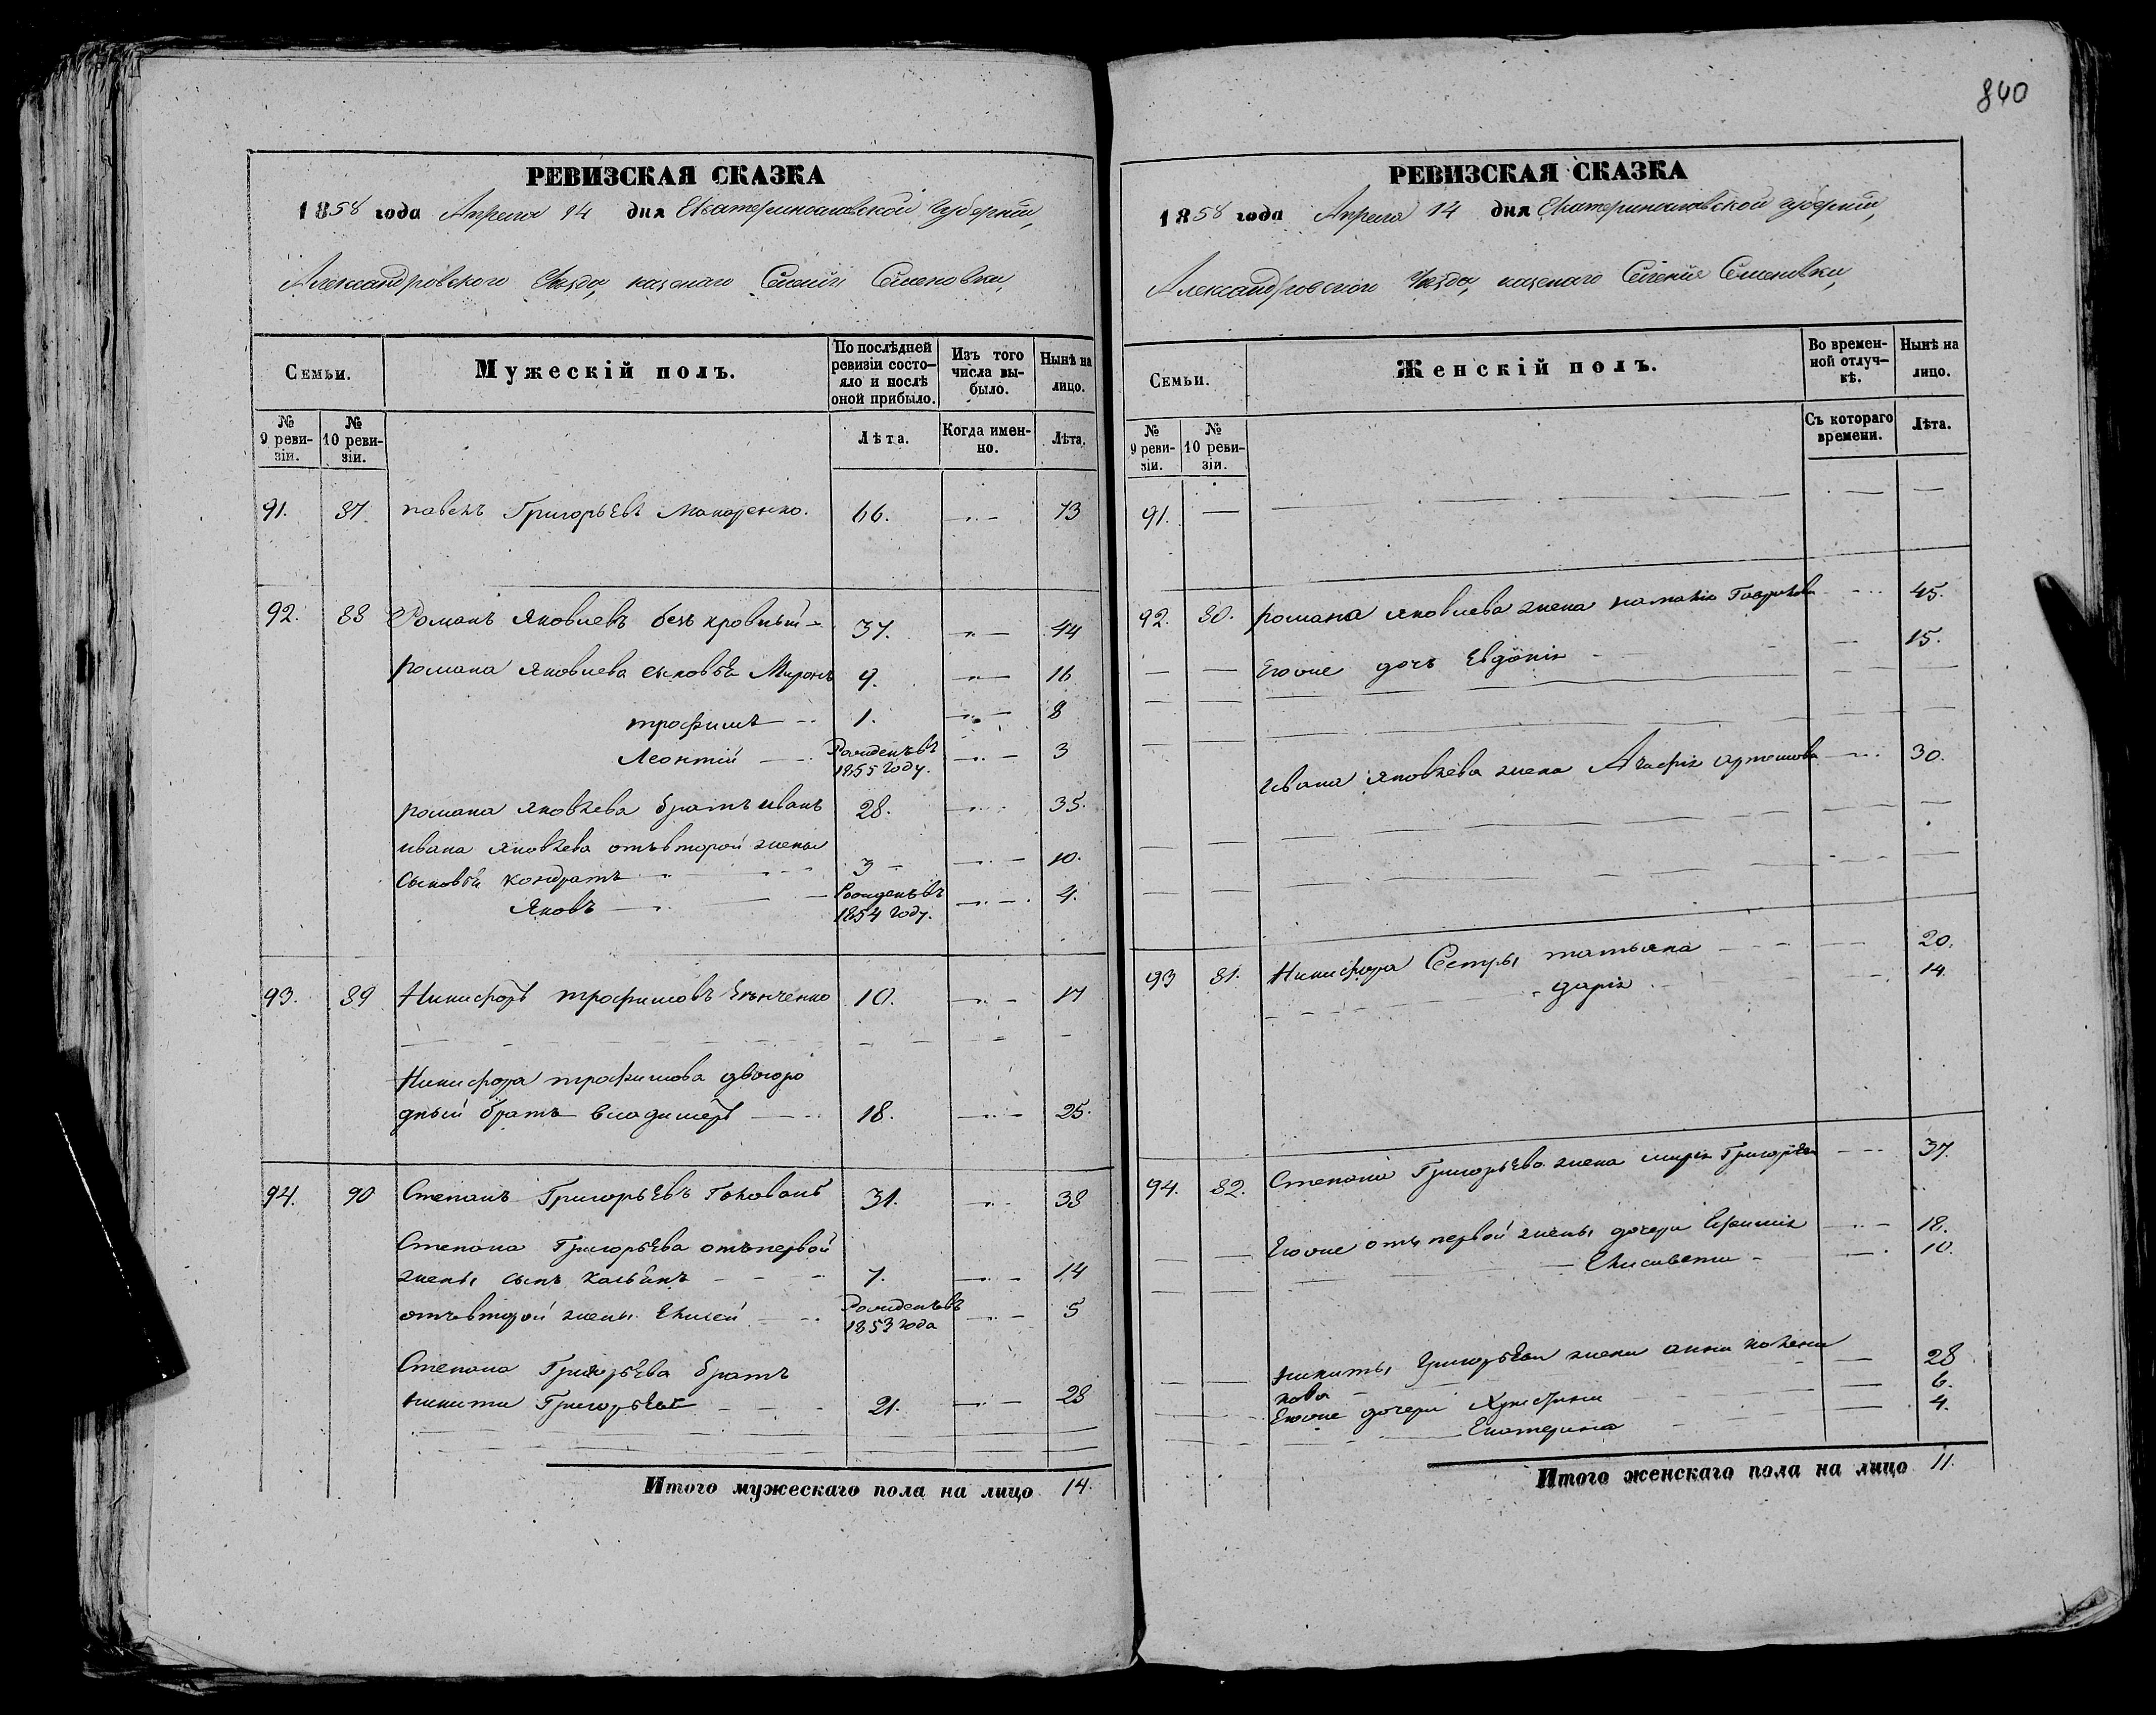 840
РЕВИЗСКАЯ СКАЗКА
1858 года Апреля 14 дня Екатеринославской губернии,
Александровского Уезда, казенаго Селения Семеновки,
Семьи.
Мужескій полъ.
По послѣдней ревизіи состо-
яло и послѣ оной прибыло.
Изъ того числа вы-
было.
Нынѣ на лицо.
№ 9 реви-
зіи.
№ 10 реви-
зіи.
Лѣта.
Когда имен-
но.
Лѣта.
91. 87 павелъ Григорьевъ Макаренко. 66. 73
92. 88 Романъ Яковлевъ безкровный 37. 44
романа Яковлева сыновья Миронъ 9. 16
трофимъ 1. 8
Леонтий Рожденъ въ 1855 году. 3
романа яковлева братъ иванъ 28. 35.
ивана яковлева отъ второй жены
сыновья кондратъ 3 10.
Яковъ Рожденъ въ 1854 году. 4.
93. 89 Никифоръ трофимовъ 10. 17
Никифора трофимова двоюро
дный братъ владимеръ 18. 25.
94. 90 Степанъ Григорьевъ 31. 38
Степана Григорьева отъ первой
жены сынъ 7. 14
отъ второй жены Елисей Рожденъ въ 1853 года 5
Степана Григорьева братъ
никита Григорьевъ 21. 28
Итого мужескаго пола на лицо 14.
РЕВИЗСКАЯ СКАЗКА
1858 года Апреля 14 дня Екатеринославской губернии,
Александровского Уезда, казенаго Селения Семеновки,
Семьи.
Женскій полъ.
Во времен-
ной отлуч-
кѣ.
Нынѣ на лицо.
№ 9 реви-
зіи.
№ 10 реви-
зіи.
Съ котораго времени.
Лѣта.
91.
92. 80. романа яковлева жена наталия 45.
Егоже дочь Евдокия 15.
Ивана яковлева жена Агафия артемова 30.
93 81. Никифора Сестры татьяна 20.
дария 14.
94. 82. Степана Григорьева жена мария 37.
Егоже отъ первой жены дочери Ефимия 18.
Елисавета 10.
никиты Григорьева жена анна
28
Егоже дочери Христина 6.
Екатерина 4.
Итого женскаго пола на лицо 11.